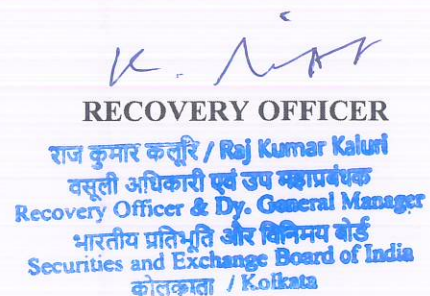 RECOVERY OFFICER
राज कुमार कलूरि / Raj Kumar Kaluri
वसूली अधिकारी एवं उप महाप्रबंधक
Recovery Officer & Dy. General Manager
भारतीय प्रतिभूति और विनिमय बोर्ड
Securities and Exchange Board of India
कोलकाता / Kolkata